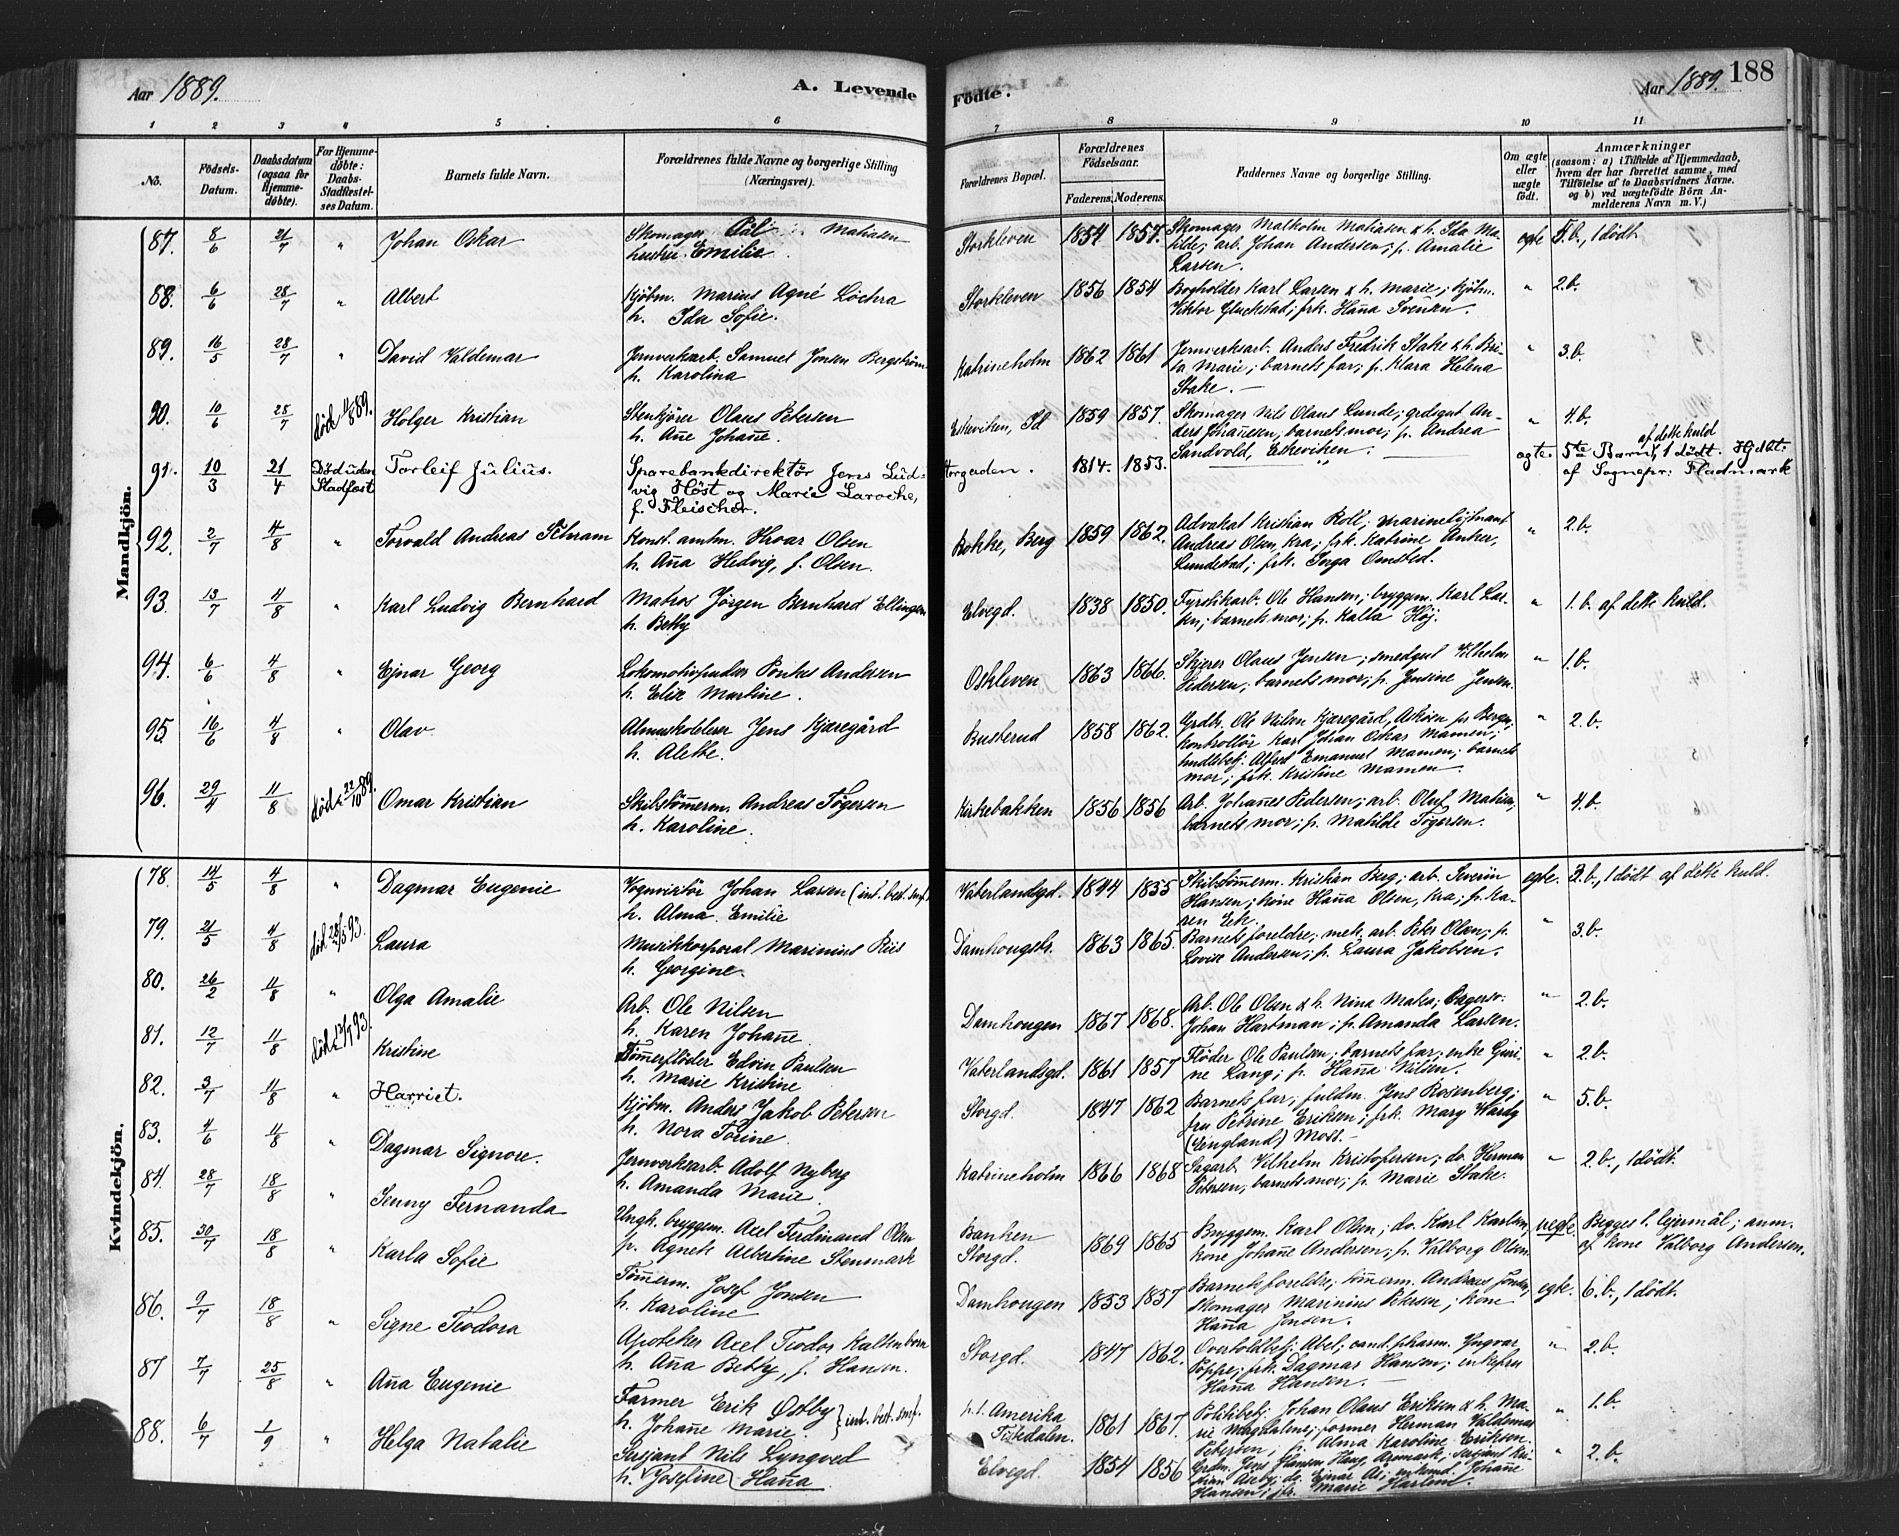 Aar 1889.
A. Levende
Födte.
Aar 1889.
188
1 2 3 4 5 6 7 8 9 10 11
No.
Födsels-Datum.
Daabsdatum (ogsaa for Hjemmedøbte).
For Hjemmedøbte: Daabs-Stadfæstelses Datum.
Barnets fulde Navn.
Forældrenes fulde Navne og borgerlige Stilling
(Næringsvei).
Forældrenes Bopæl.
Forældrenes Födselsaar.
Faderens. Moderens.
Faddernes Navne og borgerlige Stilling.
Om ægte eller uægte født.
Anmærkninger
(saasom: a) i Tilfælde af Hjemmedaab, hvem der har forrettet samme, med Tilföielse af to Daabsvidners Navne. og b) ved uægtefödte Börn Anmelderens Navn m. V.)
Mandkjön.
87. 8/6 21/7 " Johan Oskar
Skomager Pål Matiasen
hustru Emilie
Storkleven 1854 1857.
Skomager Malkolm Matiasen & h. Ida Ma-
tilde; arb. Johan Andersen; p. Amalie
Larsen.
egte 5.b., 1 dödt.
88. 6/6 28/7 " Albert
Kjöbm. Marius Agné Löchra
h. Ida Sofie.
Storkleven 1856 1854
Bogholder Karl Larsen & h. Marie; kjöbm.
Viktor Gluckstad; frk. Hana Svensen.
" 2.b.
89. 16/5 28/7 " David Valdemar
Jernverksarb. Samuel Jonsen Bergström
h. Karolina
Katrineholm 1862 1861
Jernverksarb. Anders Fredrik Stake & h. Bri-
ta Marie; barnets far; p. Klara Helena
Stake.
" 3.b.
90. 10/6 28/7 död 4/8 89. Holger Kristian
Stenkjörer Olaus Petersen
h. Ane Johane.
Eskeviken, Id 1859 1857.
Skomager Nils Olaus Lunde; grdsgut An-
ders Johanesen; barnets mor; p. Andrea
Sandvold, Eskeviken.
" 4.b.
91. 10/3 21/4 Död uden Stadfæst Torleif Julius.
Sparebankdirektör Jens Lud-
vig Höst og Marie Laroche,
f. Fleischer.
Storgaden. 1814. 1853.
egte. 5te Barn, 1 dödt. af dette kuld Hjdbt.
af Sognepr: Fladmark
92. 2/7 4/8 " Torvald Andreas Schram
Konst. amtm. Hroar Olsen
h. Ana Hedvig, f. Olsen.
Bokke, Berg 1859 1862.
Advokat Kristian Roll; marinelöjtnant
Andreas Olsen, Kra; frk. Katrine Anker,
Lundestad; frk. Inga Omsted.
" 2.b.
93. 13/7 4/8 " Karl Ludvig Bernhard
Matros Jörgen Bernhard Ellingsen
h. Betty
Elvegd. 1838 1850.
Fyrstikarb. Ole Hansen; bryggem. Karl Lar-
sen; barnets mor; p. Kalla Höj.
" 1.b. af dette kuld.
94. 6/6 4/8 " Ejnar Georg
Lokomotivpudser Pontus Andersen
h. Elise Martine.
Oskleven 1863 1866.
Skjerer Olaus Jensen; smedgut Vilhelm
Pedersen; barnets mor; p. Jensine Jensen.
" 1.b.
95. 16/6 4/8 " Olav
Almueskolelærer Jens Kjæregård
h. Alette.
Busterud 1858 1862.
Grdbr. Ole Nilsen Kjæregård, Asköen pr Bergn.
kontrollör Karl Johan Oskar Mamen;
hndlsbetj. Alfred Emanuel Mamen; barnets
mor; frk. Kristine Mamen.
" 2.b.
96. 29/4 11/8 död 22/10 89. Omar Kristian
Skibstömerm. Andreas Tögersen
h. Karoline.
Kirkebakken 1856 1856
Arb. Johanes Pedersen; arb. Oluf Matisen,
barnets mor; p. Matilde Tögersen.
" 4.b.
Kvindekjön.
78. 14/5 4/8 " Dagmar Eugenie
Vognvisitör Johan Larsen (int. best. smf.)
h. Alma Emilie
Vaterlandsgd. 1844 1855
Skibstömerm. Kristian Berg; arb. Severin
Hansen; kone Hana Olsen, Kra; p. Ka-
ren Eek.
egte. 2.b., 1 dödt af dette kuld.
79. 21/5 4/8 Laura
Musikkorporal Marinius Riis
h. Georgine.
1863 1865.
Barnets foreldre; mek. arb. Peter Olsen; p.
Lovise Andersen; p. Laura Jakobsen.
" 3.b.
80. 26/2 11/8 " Olga Amalie
Arb. Ole Nilsen
h. Karen Johane
Damhougen 1867 1868.
Arb. Ole Olsen & h. Nina Matea;
Johan Hartman; p. Amanda Larsen.
" 2.b.
81. 12/7 11/8 Kristine
Tömerfløder Edvin Paulsen
h. Marie Kristine
Vaterlandsgd. 1861 1857
Fløder Ole Paulsen; barnets far; enke Guri-
ne Lang; p. Hana Nilsen.
" 2.b.
82. 3/7 11/8 " Harriet.
Kjöbm. Anders Jakob Petersen
h. Nora Torine.
Storgd. 1847 1862
Barnets far; fuldm. Jens Rosenberg;
fru Petrine Eriksen; frk. Mary Hardy
(England) Moss.
" 5.b.
83. 4/6 11/8 " Dagmar Signore.
Jernverksarb. Adolf Nyberg
h. Amanda Marie
Katrineholm 1866 1868
Sagarb. Vilhelm Kristofersen; do. Herman
Petersen; barnets mor; p. Marie Stake.
" 2.b., 1 dödt.
84. 28/7 18/8 " Jenny Fernanda
Ungk. bryggem. Axel Ferdinand Olsen
p. Agnete Albertine Stenmark
Banken
Storgd.
1869 1865
Bryggem. Karl Olsen; do. Karl Karlsen,
kone Johane Andersen; p. Valborg Olsen
uegte. Begges 1. lejermål; anm.
af kone Valborg Andersen.
85. 30/7 18/8 " Karla Sofie
Tömerm. Josef Jonsen
h. Karoline
Damhougen 1853 1857
Barnets foreldre; tömerm. Andreas Jonsen,
Skomager Marinius Petersen; kone
Hana Jonsen.
egte. 6.b., 1 dödt.
86. 9/7 18/8 " Signe Teodora
Apoteker Axel Teodor Kaltenborn
h. Ana Betsy, f. Hansen.
Storgd. 1847 1862.
Overtoldbetj. Abel; cand. pharm. Yngvar
Poppe; frk. Dagmar Hansen; enkefru
Hana Hansen.
" 2.b.
87 7/7 25/8 " Ana Eugenie
Farmer Erik Östby } int. best. smf.
h. Johane Marie
p. t. Amerika
Tistedalen.
1861 1867.
Politibetj. Johan Olaus Eriksen & h. Ma-
rie Magdalene; farmer Herman Valdemar
Petersen; p. Alma Karoline Eriksen.
" 1.b.
88. 6/7 1/9 " Helga Natalie
Serjant Nils Lyngved
h. Josefine (Hana
Elvegd. 1854 1856
" 2.b.